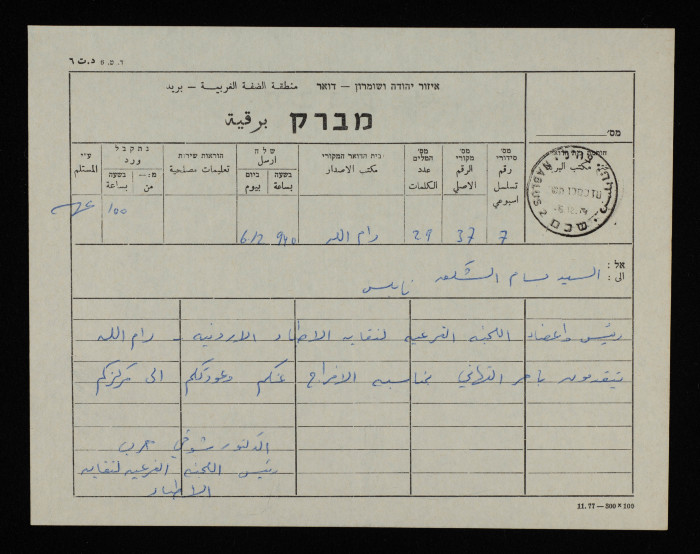 ד. ט. 6 د.ت ٦
איזור יהודה ושומרון – דואר منطقة الضفة الغربية – بريد
מברק برقية
מס'
מס' סידורי رقم تسلسل اسبوعي
מס' מקורי الرقم الاصلي
מס' המלים عدد الكلمات
בית הדואר המקורי مكتب الاصدار
שלח ارسل
בשעה بساعة
ביום بيوم
הוראות שירות تعليمات مصلحية
נתקבל ورد
מ:— من
בשעה بساعة
ע"י المستلم
مكتب
שכם
NABLUS 2
7
37
29
رام الله
940
6/12
100
אל:
الى:
السيد بسام الشكعه
نابلس
رئيس واعضاء اللجنه الفرعيه لنقابه الاطباء الاردنيه - رام الله
يتقدمون باحر التهاني بمناسبه الافراج عنكم وعودتكم الى مركزكم
الدكتور شوقي حرب
رئيس اللجنه الفرعيه لنقابه
الاطباء
11. 77 — 300 × 100